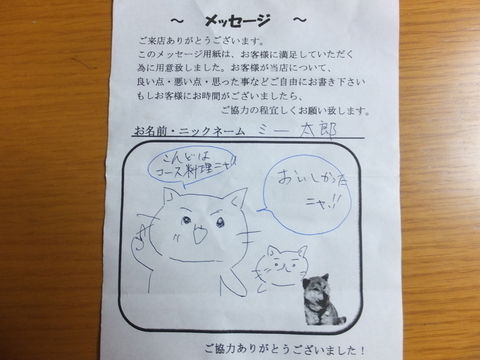 ～ メッセージ ～
ご来店ありがとうございます。
このメッセージ用紙は、お客様に満足していただく
為に用意致しました。お客様が当店について、
良い点・悪い点・思った事などご自由にお書き下さい
もしお客様にお時間がございましたら、
ご協力の程宜しくお願い致します。
お名前・ニックネーム ミー太郎
こんどは
コース料理ニャ!!
おいしかった
ニャ!!
ご協力ありがとうございました！